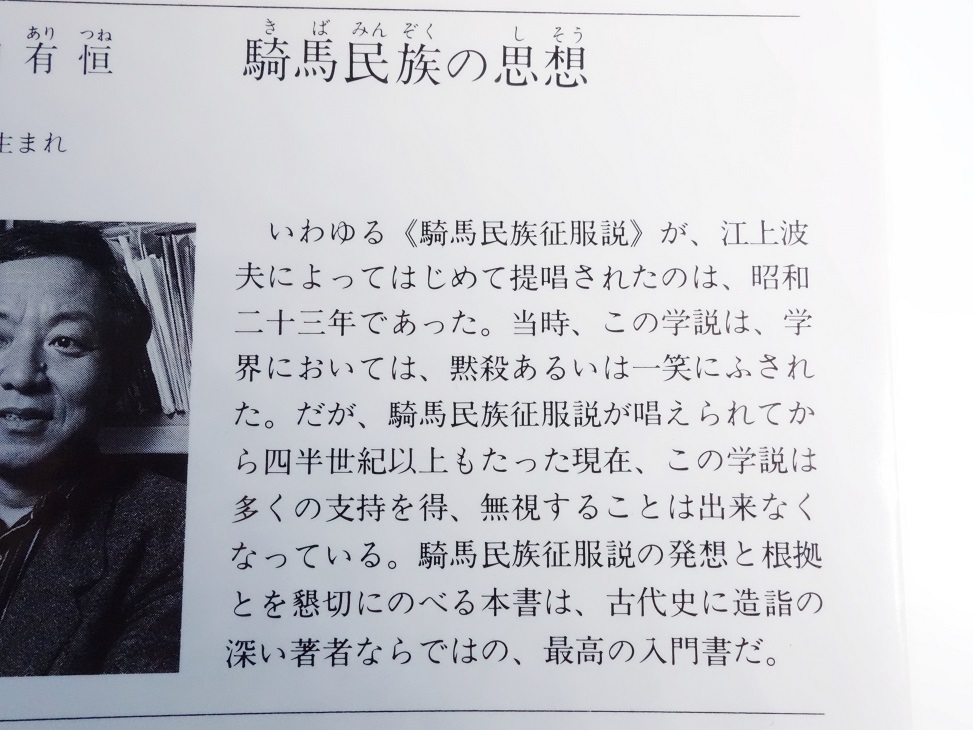 あり つね
有恒
き ば みん ぞく し そう
騎馬民族の思想
生まれ
いわゆる《騎馬民族征服説》が、江上波
夫によってはじめて提唱されたのは、昭和
二十三年であった。当時、この学説は、学
界においては、黙殺あるいは一笑にふされ
た。だが、騎馬民族征服説が唱えられてか
ら四半世紀以上もたった現在、この学説は
多くの支持を得、無視することは出来なく
なっている。騎馬民族征服説の発想と根拠
とを懇切にのべる本書は、古代史に造詣の
深い著者ならではの、最高の入門書だ。